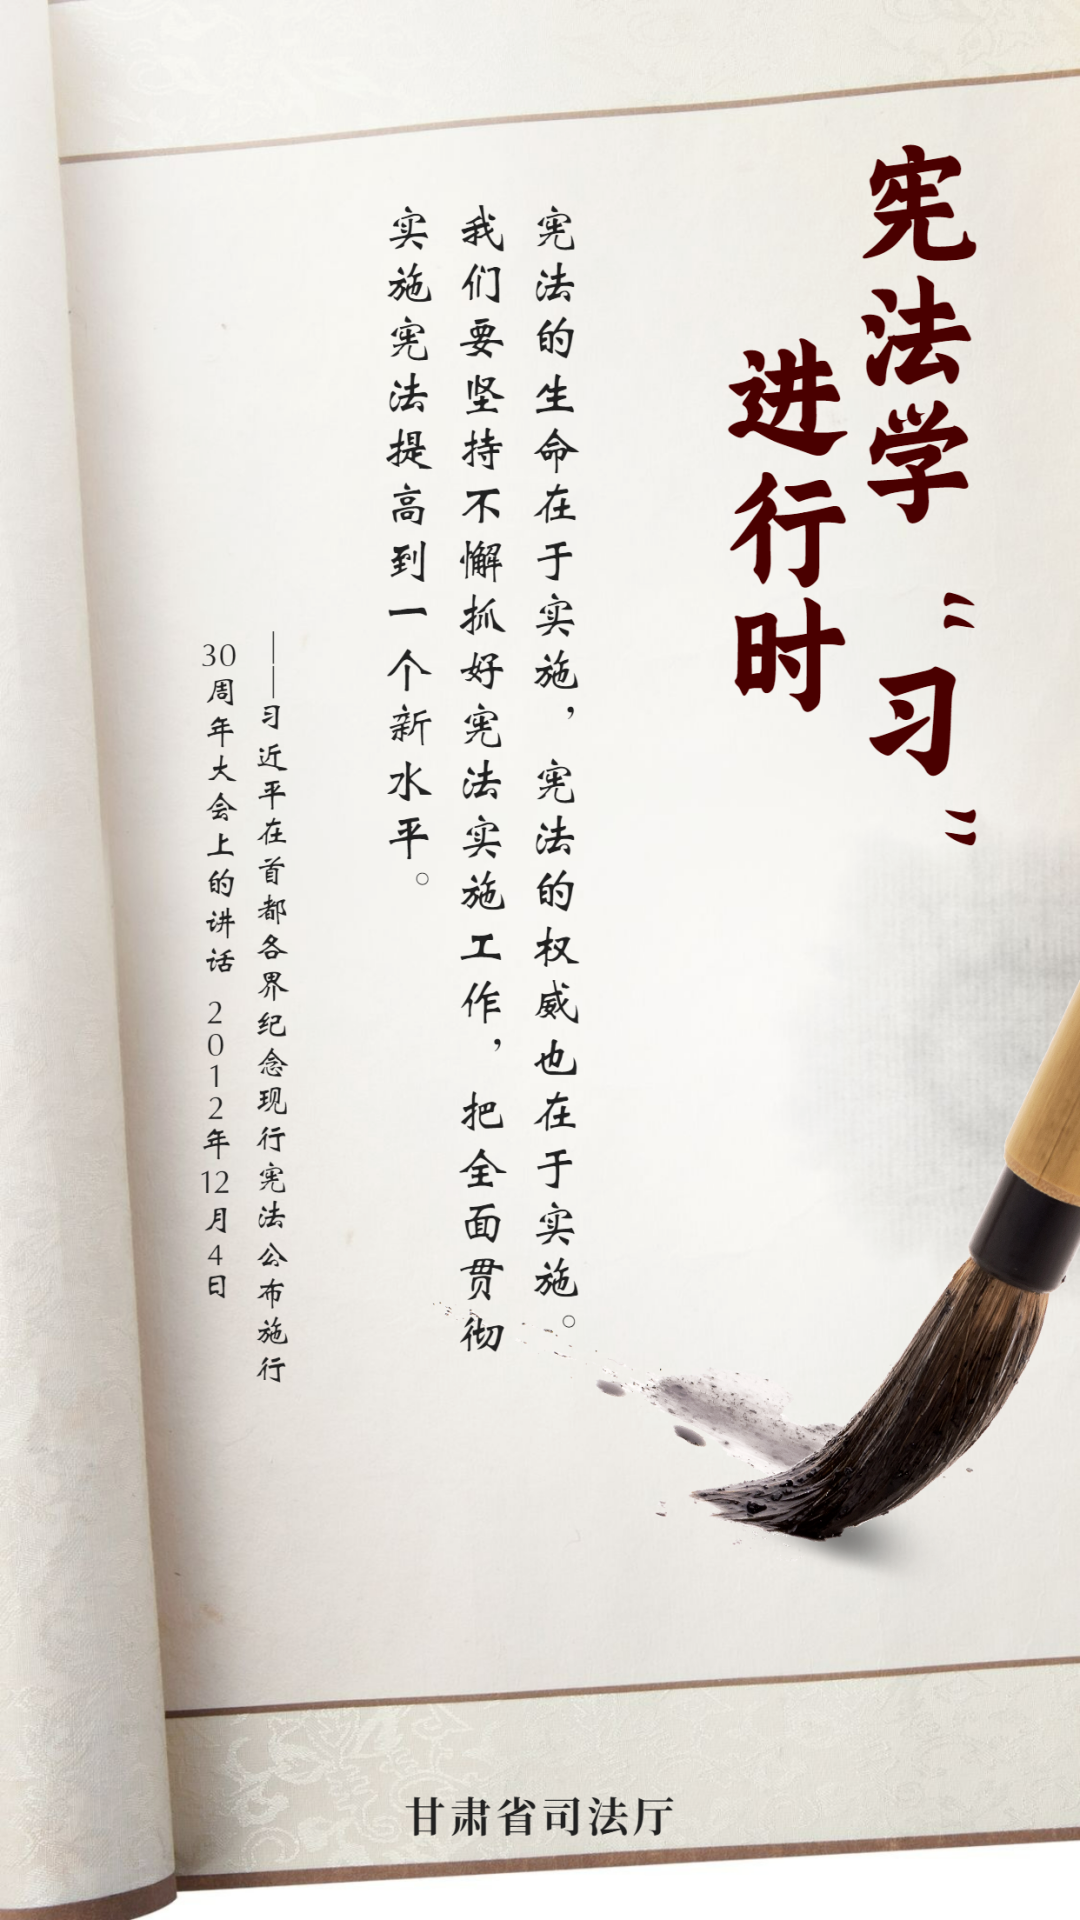 宪法学“习”
进行时
宪法的生命在于实施，宪法的权威也在于实施。
我们要坚持不懈抓好宪法实施工作，把全面贯彻
实施宪法提高到一个新水平。
——习近平在首都各界纪念现行宪法公布施行
30周年大会上的讲话 2012年12月4日
甘肃省司法厅